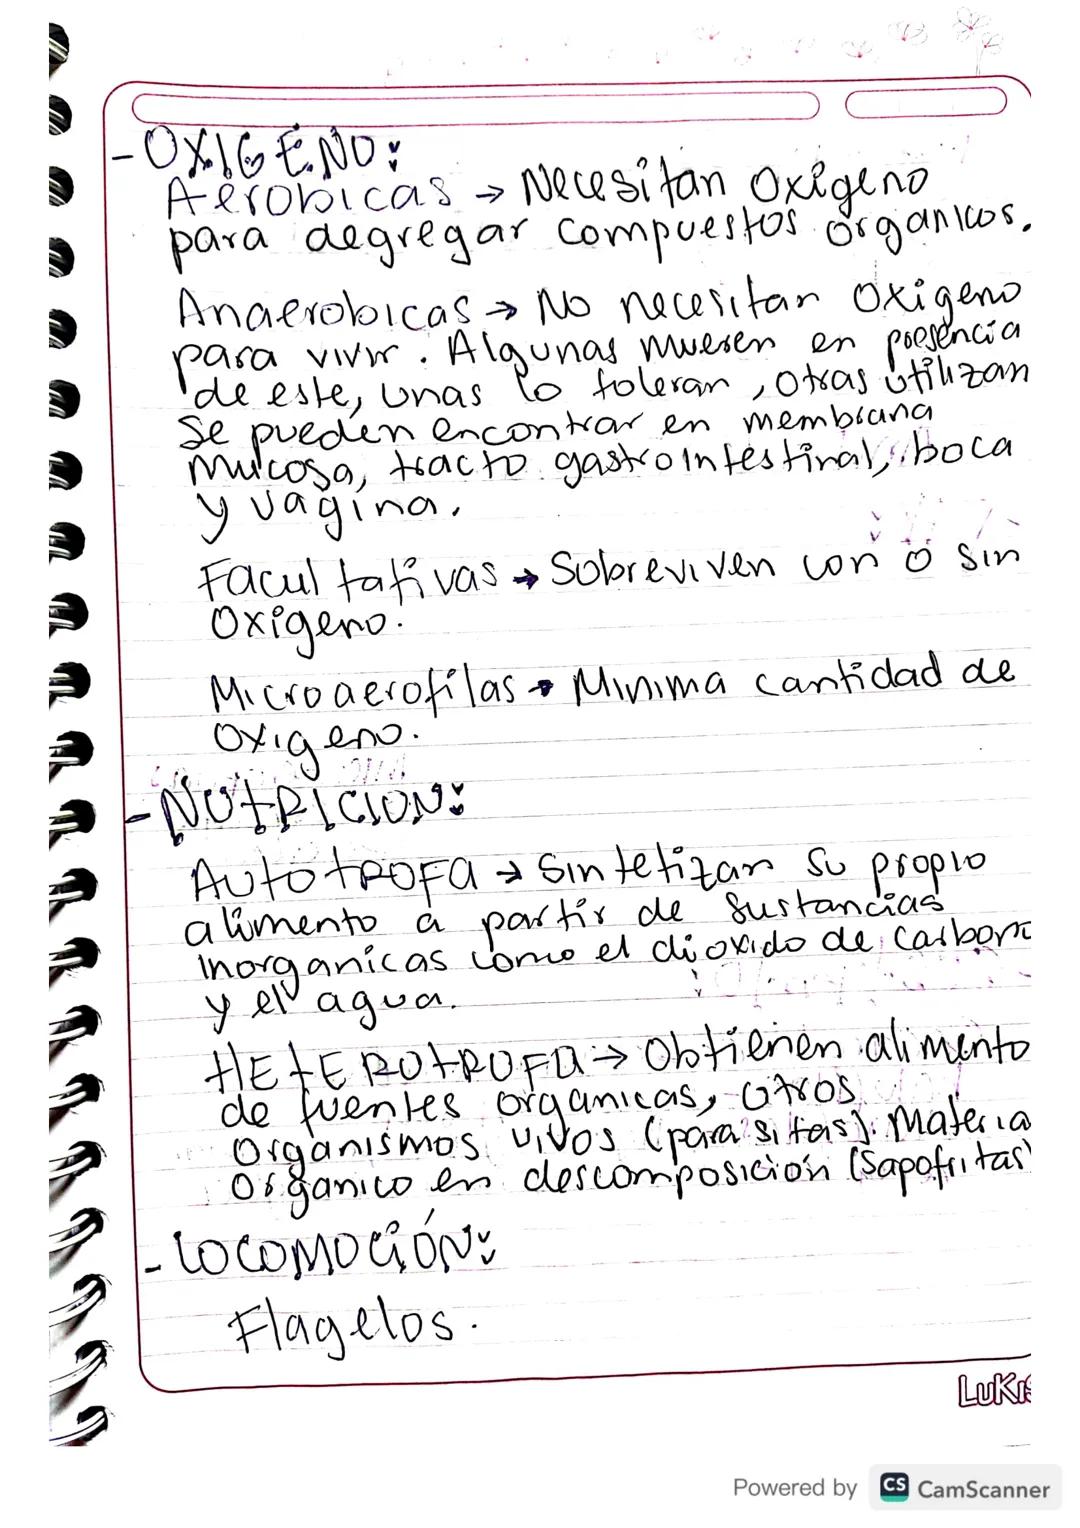 - OXIGENO:
Aerobicas → Necesitan Oxigeno
para degregar compuestos organicos.
Anaerobicas → No necesitan Oxigeno
para vivir. Algunas mueren en presencia
de este, unas lo toleran, otras utilizan
Se pueden encontrar en membrana
mucosa, tracto gastrointestinal, boca
y vagina.
Facultativas → Sobreviven con o sin
Oxigeno.
Microaerofilas → Minima cantidad de
Oxigeno.
- NUTRICION:
AUTOTROFA → Sintetizan su propio
alimento a partir de sustancias
inorganicas como el dioxido de carbono
y el agua.
HETEROTROFA → Obtienen alimento
de fuentes organicas, otros
organismos vivos (parasitas). Materia
organico en descomposición (Sapofritas)
- LOCOMOCIÓN:
Flagelos.
LUKIS
Powered by CS CamScanner